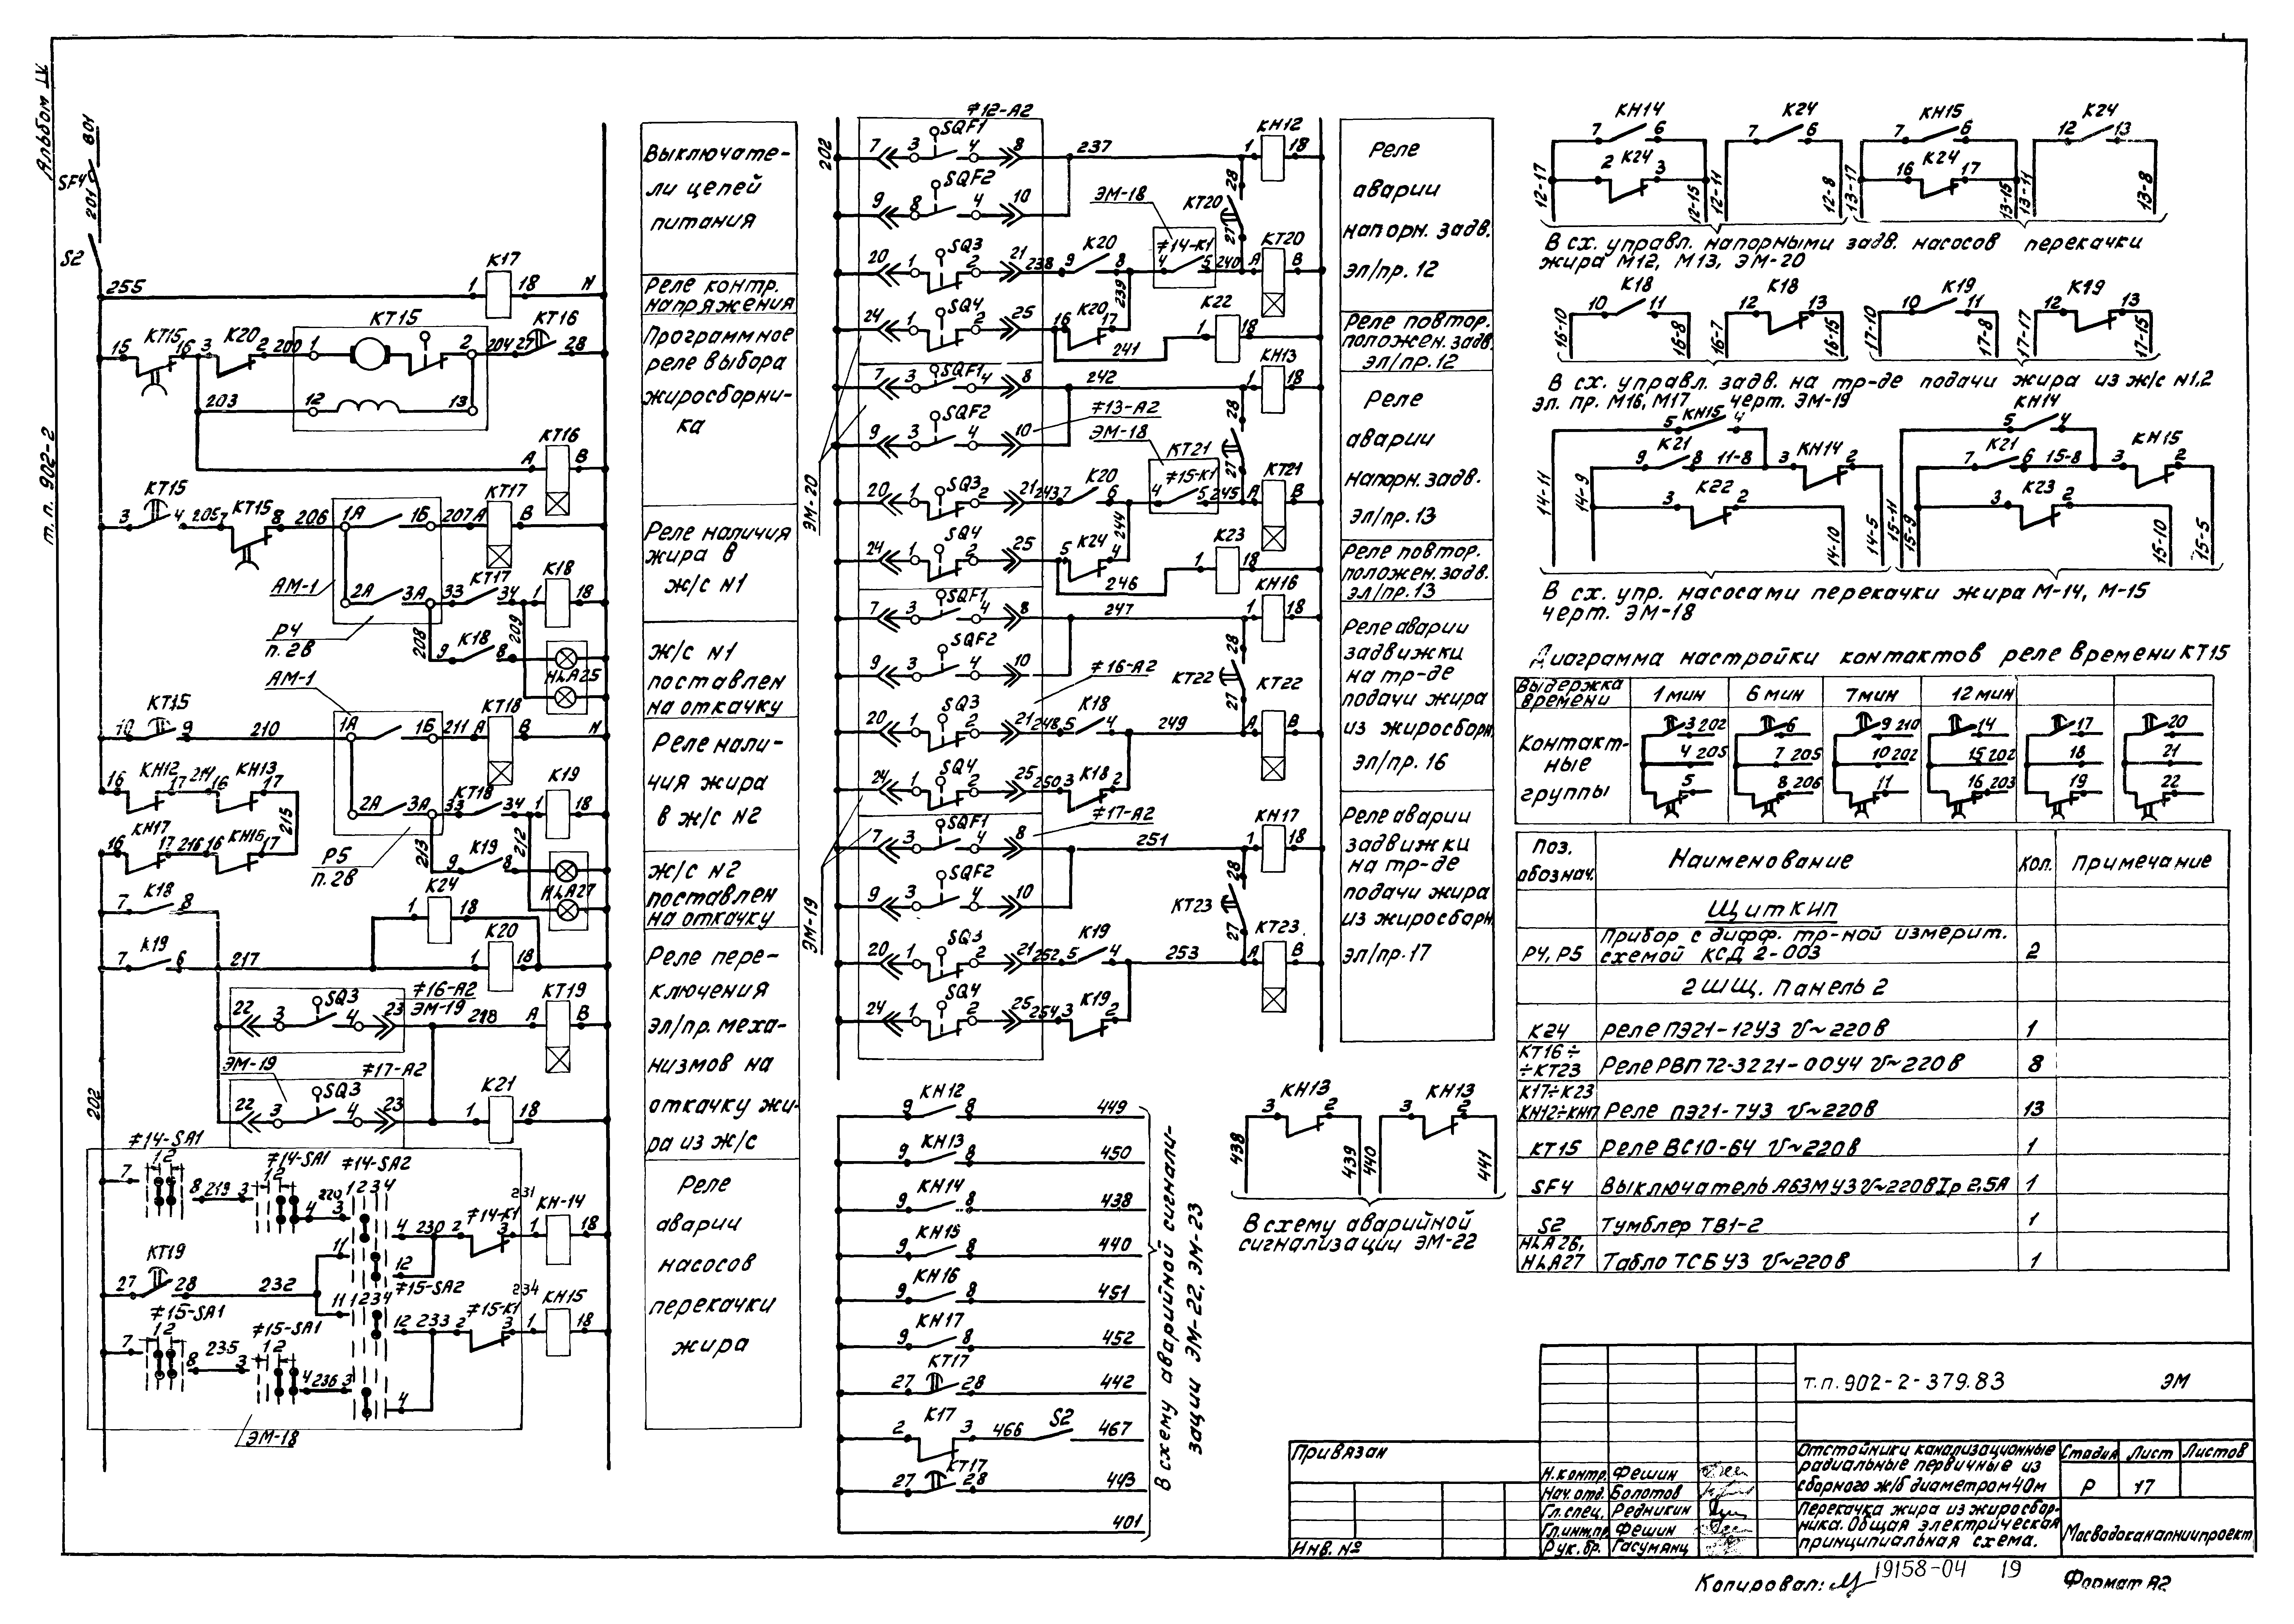 Альбом IV
т.п. 902-2
801
SF4
201
S2
255
К17
1
18
N
КТ15
К20
КТ15
КТ16
15
16
3
2
200
1
2
204
27
28
203
12
13
КТ16
А
В
КТ15
КТ15
КТ17
3
4
205
7
8
206
1А
1Б
207
А
В
АМ-1
2А
3А
33
КТ17
34
К18
1
18
Р4
п.2в
208
209
9
К18
8
HLA25
АМ-1
КТ15
КТ18
10
9
210
1А
1Б
211
А
В
N
КН12
КН13
16
17
214
16
17
215
2А
3А
33
КТ18
34
К19
1
18
КН17
КН16
16
17
216
16
17
Р5
п.2в
213
212
9
К19
8
HLA27
7
К18
8
К24
1
18
7
К19
6
217
К20
1
18
202
22
3
SQ3
4
23
#16-А2
ЭМ-19
218
КТ19
А
В
ЭМ-19
#17-А2
22
3
SQ3
4
23
К21
1
18
#14-SA1
#14-SA1
#14-SA2
7
12
8
219
3
12
4
220
3
1234
4
230
2
#14-К1
3
231
1
КН-14
18
КТ19
27
28
232
11
12
#15-SA2
#15-SA1
#15-SA1
11
1234
12
233
2
#15-К1
3
234
1
КН15
18
7
12
8
235
3
12
4
236
3
4
ЭМ-18
Выключате-
ли цепей
питания
Реле контр.
напряжения
Программное
реле выбора
жиросборни-
ка
Реле наличия
жира в
ж/с N1
Ж/с N1
поставлен
на откачку
Реле нали-
чия жира
в ж/с N2
Ж/с N2
поставлен
на откачку
Реле пере-
ключения
эл/пр. меха-
низмов на
откачку жи-
ра из ж/с
Реле
аварии
насосов
перекачки
жира
202
#12-А2
7
3
SQF1
4
8
237
КН12
1
18
9
8
SQF2
4
10
ЭМ-18
КТ20
28
27
20
1
SQ3
2
21
238
9
К20
8
#14-К1
4
5
240
КТ20
А
В
24
1
SQ4
2
25
16
К20
17
239
241
К22
1
18
7
3
SQF1
4
8
242
КН13
1
18
9
3
SQF2
4
10
#13-А2
ЭМ-18
КТ21
28
27
ЭМ-20
20
1
SQ3
2
21
243
7
К20
6
#15-К1
4
5
245
КТ21
А
В
24
1
SQ4
2
25
5
К24
4
244
246
К23
1
18
7
3
SQF1
4
8
247
КН16
1
18
9
3
SQF2
4
10
#16-А2
КТ22
28
27
20
1
SQ3
2
21
248
5
К18
4
249
КТ22
А
В
24
1
SQ4
2
25
250
3
К18
2
#17-А2
7
3
SQF1
4
8
251
КН17
1
18
9
3
SQF2
4
10
КТ23
28
27
ЭМ-19
20
1
SQ3
2
21
252
5
К19
4
253
КТ23
А
В
24
1
SQ4
2
25
254
3
К19
2
9
КН12
8
449
9
КН13
8
450
9
КН14
8
438
9
КН15
8
440
9
КН16
8
451
9
КН17
8
452
27
КТ17
28
442
2
К17
3
466
S2
467
27
КТ17
28
443
401
В схему аварийной сигнали-
зации ЭМ-22, ЭМ-23
Реле
аварии
напорн. задв.
эл/пр. 12
Реле повтор.
положен. задв.
эл/пр. 12
Реле
аварии
напорн. задв.
эл/пр. 13
Реле повтор.
положен. задв.
эл/пр. 13
Реле аварии
задвижки
на тр-де
подачи жира
из жиросборн.
эл/пр. 16
Реле аварии
задвижки
на тр-де
подачи жира
из жиросборн
эл/пр. 17
КН13
КН13
3
2
3
2
438
439
440
441
В схему аварийной
сигнализации ЭМ-22
КН14
К24
КН15
К24
7
6
7
6
7
6
12
13
2
К24
3
16
К24
17
12-17
12-15
12-11
12-8
13-17
13-15
13-11
13-8
В сх. управл. напорными задв. насосов перекачки
жира М12, М13, ЭМ-20
К18
К18
К19
К19
10
11
12
13
10
11
12
13
16-10
16-8
16-7
16-15
17-10
17-8
17-17
17-15
В сх. управл. задв. на тр-де подачи жира из ж/с N1,2
эл. пр. М16, М17 черт. ЭМ-19
5
КН15
4
5
КН14
4
9
К21
8
11-8
3
КН14
2
7
К21
6
15-8
3
КН15
2
3
К22
2
3
К23
2
14-11
14-9
14-10
14-5
15-11
15-9
15-10
15-5
В сх. упр. насосами перекачки жира М-14, М-15
черт. ЭМ-18
Диаграмма настройки контактов реле времени КТ15
Выдержка
времени
1 мин
6 мин
7 мин
12 мин
Контакт-
ные
группы
3 202
6
9 210
14
17
20
4 205
7 205
10 202
15 202
18
21
5
8 206
11
16 203
19
22
Поз.
обознач.
Наименование
Кол.
Примечание
Щит КИП
Р4, Р5
Прибор с дифф. тр-ной измерит.
схемой КСД 2-003
2
2ШЩ. Панель 2
К24
Реле ПЭ21-12У3 V~220в
1
КТ16÷
÷КТ23
Реле РВП 72-3221-00У4 V~220в
8
К17÷К23
КН12÷КН17
Реле ПЭ21-7У3 V~220в
13
КТ15
Реле ВС10-64 V~220в
1
SF4
Выключатель А63МУ3 V~220в Iр 2,5А
1
S2
Тумблер ТВ1-2
1
HLA26,
HLA27
Табло ТСБ У3 V~220в
1
т.п. 902-2-379.83
ЭМ
Привязан
Инв. №
Н.контр.
Фешин
Нач.отд.
Болотов
Гл.спец.
Редникин
Гл.инж.пр
Фешин
Рук.бр.
Гасумянц
Отстойники канализационные
радиальные первичные из
сборного ж/б диаметром 40м
Стадия
Лист
Листов
Р
17
Перекачка жира из жиросбор-
ника. Общая электрическая
принципиальная схема.
Мосводоканалниипроект
Копировал:
19158-04
19
Формат А2